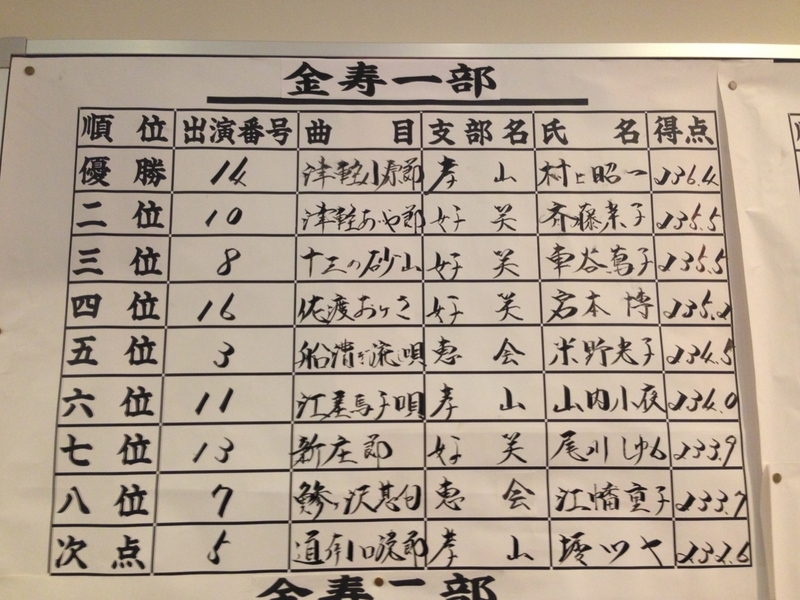 金寿一部
順位 出演番号 曲目 支部名 氏名 得点
優勝 14 津軽小原節 孝山 村上昭一 236.4
二位 10 津軽あいや節 好笑 斉藤 子 235.5
三位 8 十三の砂山 好笑 車谷蔦子 235.5
四位 16 佐渡おけさ 好笑 岩本博
五位 3 船漕ぎ流し唄 恵会 米野光子 234.5
六位 11 江差馬子唄 孝山 山内小夜 234.0
七位 13 新庄節 好笑 尾川しゆ 233.9
八位 7 鰺ヶ沢甚句 恵会 江幡重子 233.7
次点 5 道南口説節 孝山 ツヤ 232.6
金寿二部